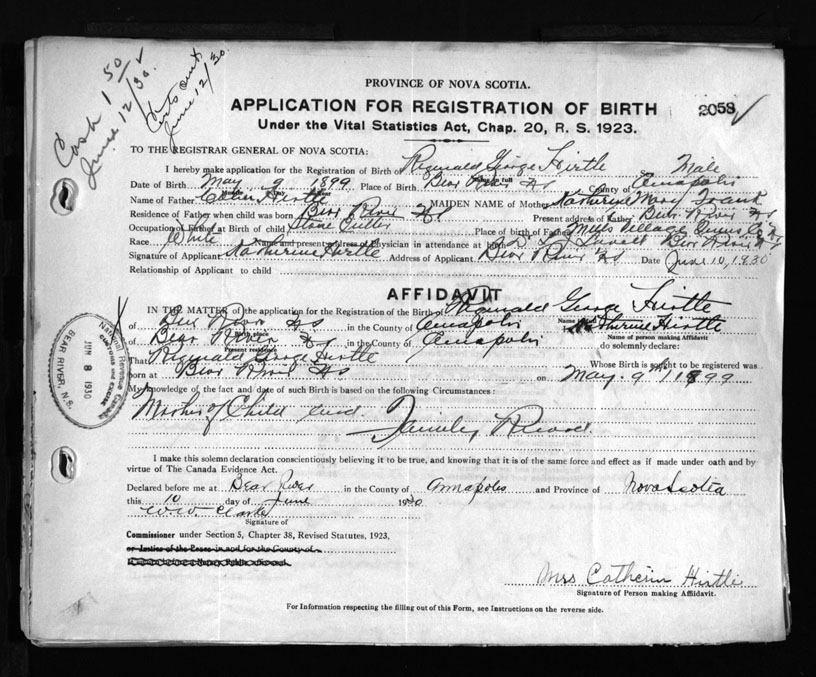 Cash 1 50
June 12/30.
Certs out
June 12/30.
PROVINCE OF NOVA SCOTIA.
APPLICATION FOR REGISTRATION OF BIRTH
2058
Under the Vital Statistics Act, Chap. 20, R. S. 1923.
TO THE REGISTRAR GENERAL OF NOVA SCOTIA:
I hereby make application for the Registration of Birth of Reginald George Hirtle Sex Male
Date of Birth May 9 1899 Place of Birth Bear River NS County of Annapolis
Name of Father Hirtle MAIDEN NAME of Mother Katherine Mary
Residence of Father when child was born Bear River NS Present address of Father Bear River NS
Occupation of Father at Birth of child Stone Cutter Place of birth of Father Mills Village Queens Co NS
Race White Name and present address of Physician in attendance at birth Bear River NS
Signature of Applicant Katherine Hirtle Address of Applicant Bear River NS Date June 10, 1930
Relationship of Applicant to child
AFFIDAVIT
IN THE MATTER of the application for the Registration of the Birth of Reginald George Hirtle
of Bear River NS in the County of Annapolis Katherine Hirtle
of Bear River NS in the County of Annapolis Name of person making Affidavit
Present residence
do solemnly declare:
That Reginald George Hirtle Whose Birth is sought to be registered was
born at Bear River NS on May 9th 1899
My knowledge of the fact and date of such Birth is based on the following Circumstances:
Mother of Child and
Family Record.
I make this solemn declaration conscientiously believing it to be true, and knowing that it is of the same force and effect as if made under oath and by
virtue of The Canada Evidence Act.
Declared before me at Bear River in the County of Annapolis and Province of Nova Scotia
this 10 day of June 1930
W.W. Clarke
Signature of
Commissioner under Section 5, Chapter 38, Revised Statutes, 1923,
or Justice of the Peace in and for the County of
Mrs Catherin Hirtle
Signature of Person making Affidavit.
For Information respecting the filling out of this Form, see Instructions on the reverse side.
National Revenue Canada
CUSTOMS AND EXCISE
JUN 8 1930
BEAR RIVER, N.S.